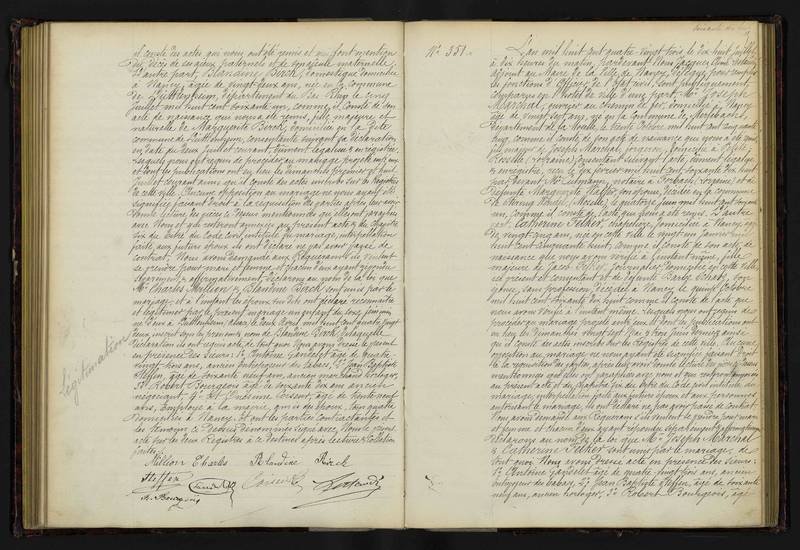 il conste des actes qui nous ont été remis et qui font mention
du décès de ses aïeux paternels et de son aïeule maternelle,
d'autre part, Blandine Birck, domestique domiciliée
à Nancy, âgée de vingt deux ans, née en la commune
de Puttelsheim, département de
juillet mil huit cent soixante un, comme il conste de son
acte de naissance qui nous a été remis, fille majeure et
naturelle de Marguerite Birck, domiciliée en la dite
commune de consentante suivant sa déclaration
en date du deux juillet courant, dûment légalisée & enregistrée,
lesquels nous ont requis de procéder au mariage projeté entre eux
et dont les publications ont eu lieu les dimanches premier et huit
juillet courant ainsi qu'il conste des actes inscrits sur les Registres
de cette ville. Aucune opposition au mariage ne nous ayant été
signifiée faisant droit à la réquisition des parties après leur avoir
donné lecture des pièces ci-dessus mentionnées qu'elles ont paraphées
avec Nous et qui resteront annexées au présent acte & du chapitre
six du titre du Code civil intitulé du mariage, interpellation
faite, aux futurs époux ils ont déclaré ne pas avoir passé de
contrat. Nous avons demandé aux Requérants s'ils veulent
se prendre pour mari et femme, et chacun d'eux ayant répondu
séparément & affirmativement, déclarons au nom de la loi que
Mr Charles Million & Blandine Birck sont unis par le
mariage: et à l'instant les époux susdits ont déclaré reconnaître
et légitimer par le présent mariage un enfant du sexe féminin
née d'eux à le deux Avril mil huit cent quatre vingt
deux, inscrit sous les prénoms et nom de Blandine Birck, de laquelle
déclaration ils ont requis acte de tout quoi Nous avons dressé le présent
en présence des Sieurs: 1° Antoine Gandelet âgé de quatre
vingt trois ans, ancien entreposeur de tabac, 2° Jean Baptiste
Steffen, âgé de soixante neuf ans, ancien horloger,
3° Robert Bourgeois âgé de soixante dix ans ancien
négociant, 4° et âgé de trente neuf
ans, Employé à la mairie, amis des époux, tous quatre
domiciliés à Nancy. Et ont les parties contractantes et
les témoins ci-dessus dénommés signé avec Nous le présent
acte sur les deux Registres à ce destinés après lecture & collation
faites.
Million Charles Blandine Birck
Steffen
R. Bourgeois
légitimation
N° 351.
L'an mil huit cent quatre-vingt trois le dix huit juillet,
à dix heures du matin, pardevant Nous Jacques
adjoint au Maire de la Ville de Nancy, délégué pour remplir
les fonctions d'officier de l'état civil, sont publiquement
comparus en l'hôtel de ville d'une part Mr Joseph
Marchal, ouvrier au chemin de fer, domicilié à Nancy
âgé de vingt sept ans, né en la commune de
département de la Moselle, le trente Octobre mil huit cent cinquante
cinq, comme il conste de son acte de naissance qui nous a été remis
fils majeur de Joseph Marchal, domicilié à Petite
Rosselle (Lorraine) consentant suivant acte, dûment légalisé
& enregistré, reçu le dix février mil huit cent soixante dix huit
par devant Me notaire à Forbach, Lorraine; et de
défunte Marguerite décédée en la commune
de Stiring Wendel, (Moselle) le quatorze juin mil huit cent soixante
un, comme il conste de l'acte qui nous a été remis. D'autre
part Catherine Felker, chapelière, domiciliée à Nancy âgée
de vingt cinq ans, née en cette ville le vingt un Janvier mil
huit cent cinquante huit, comme il conste de son acte de
naissance que nous avons vérifié à l'instant même, fille
majeure de Jacob Felker, journalier, domicilié en cette ville,
ici présent et consentant et de défunte
sans profession, décédée à Nancy, le quinze Octobre
mil huit cent soixante dix huit comme il conste de l'acte que
nous avons vérifié à l'instant même. Lesquels nous ont requis de
procéder au mariage projeté entre eux et dont les publications ont
eu lieu les dimanches vingt sept Mai & trois Juin dernier ainsi
qu'il conste des actes inscrits sur les Registres de cette ville. Aucune
opposition au mariage ne nous ayant été signifiée faisant droit
à la réquisition des parties, après leur avoir donné lecture des pièces ci-dessus
mentionnées qu'elles ont paraphées avec nous et qui resteront annexées
au présent acte et du chapitre six du titre du Code civil intitulé du
mariage, interpellation faite aux futurs époux et aux personnes
autorisant le mariage, ils ont déclaré ne pas avoir passé de contrat.
Nous avons demandé aux Requérants s'ils veulent se prendre pour mari
et femme et chacun d'eux ayant répondu séparément & affirmativement
déclarons au nom de la loi que Mr Joseph Marchal
& Catherine Felker sont unis par le mariage, de
tout quoi Nous avons dressé acte en présence des Sieurs:
1° Antoine Gandelet âgé de quatre vingt trois ans, ancien
entreposeur de tabac, 2° Jean Baptiste Steffen, âgé de soixante
neuf ans, ancien horloger, 3° Robert Bourgeois, âgé